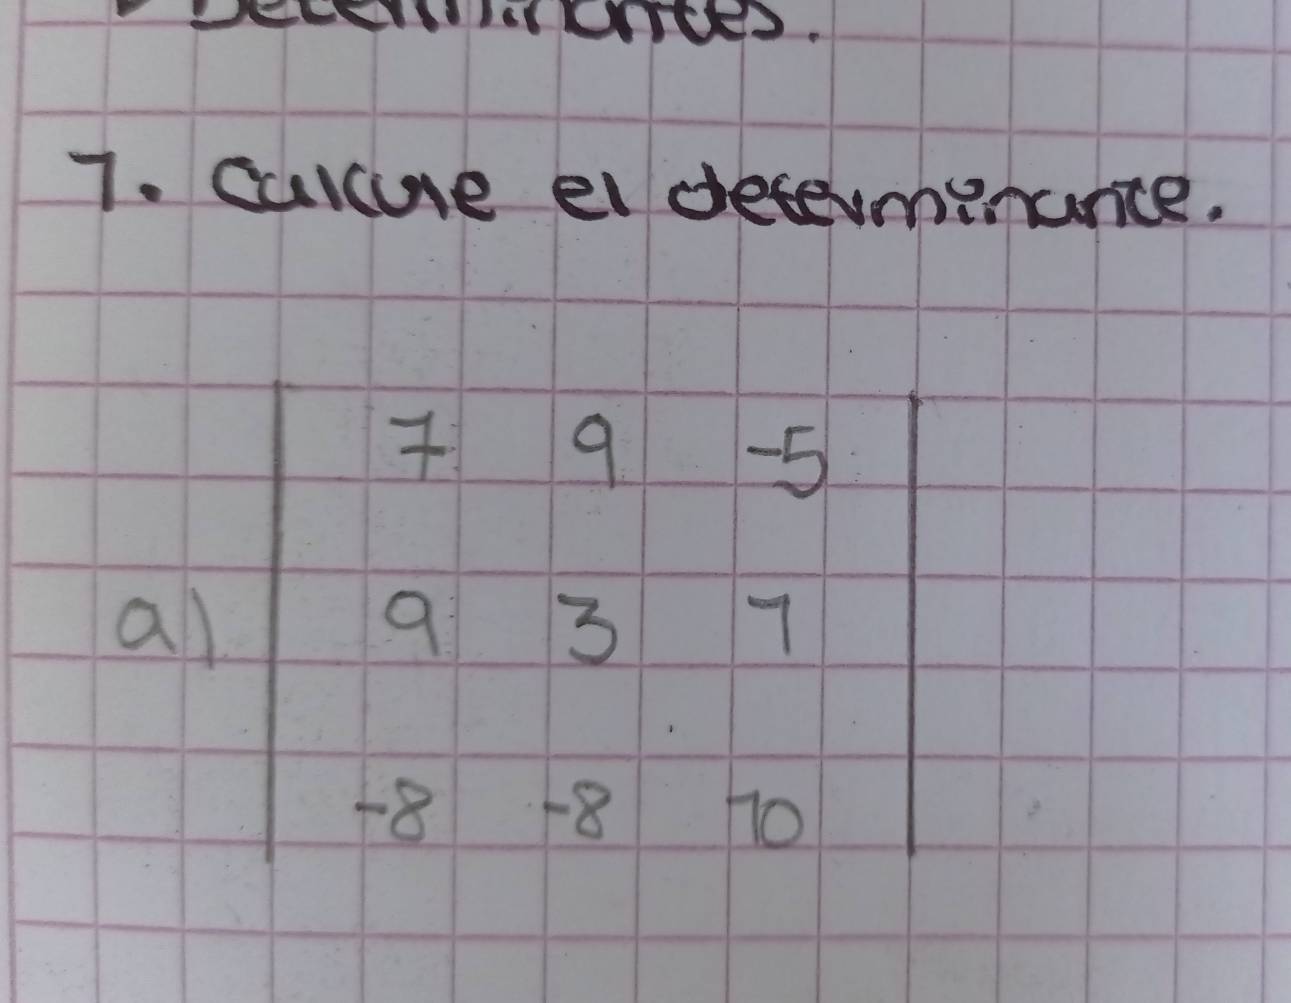 Determinantes.
1. Calcule el determinante.
7 9 -5
a) 9 3 1
-8 -8 10